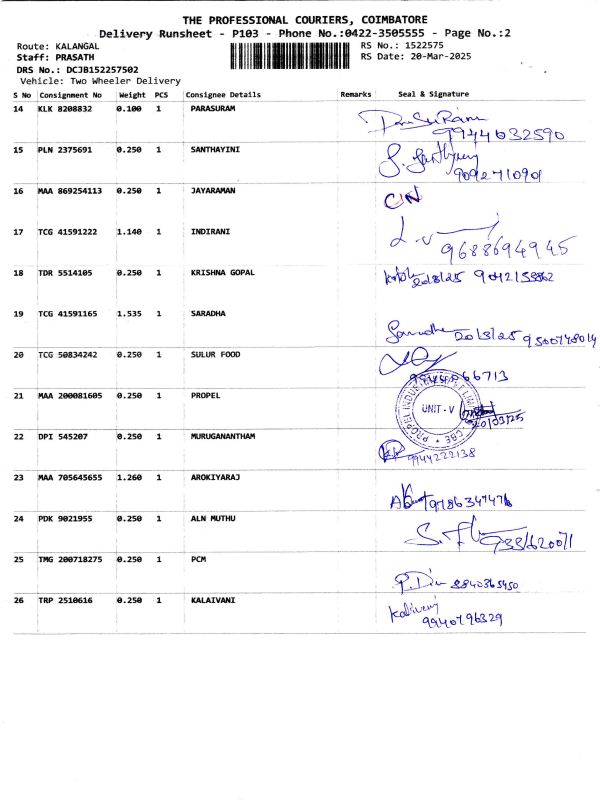 THE PROFESSIONAL COURIERS, COIMBATORE
Delivery Runsheet - P103 - Phone No.:0422-3505555 - Page No.:2
Route: KALANGAL RS No.: 1522575
Staff: PRASATH RS Date: 20-Mar-2025
DRS No.: DCJB152257502
Vehicle: Two Wheeler Delivery
S No Consignment No Weight PCS Consignee Details Remarks Seal & Signature
14 KLK 8208832 0.100 1 PARASURAM
9944632590
15 PLN 2375691 0.250 1 SANTHAYINI
9092710901
16 MAA 869254113 0.250 1 JAYARAMAN
17 TCG 41591222 1.140 1 INDIRANI
9688694945
18 TDR 5514105 0.250 1 KRISHNA GOPAL
19 TCG 41591165 1.535 1 SARADHA
Saradha 20/3/25
20 TCG 50834242 0.250 1 SULUR FOOD
21 MAA 200081605 0.250 1 PROPEL
UNIT - V
20/03/25
22 DPI 545207 0.250 1 MURUGANANTHAM
9944222138
23 MAA 705645655 1.260 1 AROKIYARAJ
24 PDK 9021955 0.250 1 ALN MUTHU
25 TMG 200718275 0.250 1 PCM
8840365450
26 TRP 2510616 0.250 1 KALAIVANI
9940796329